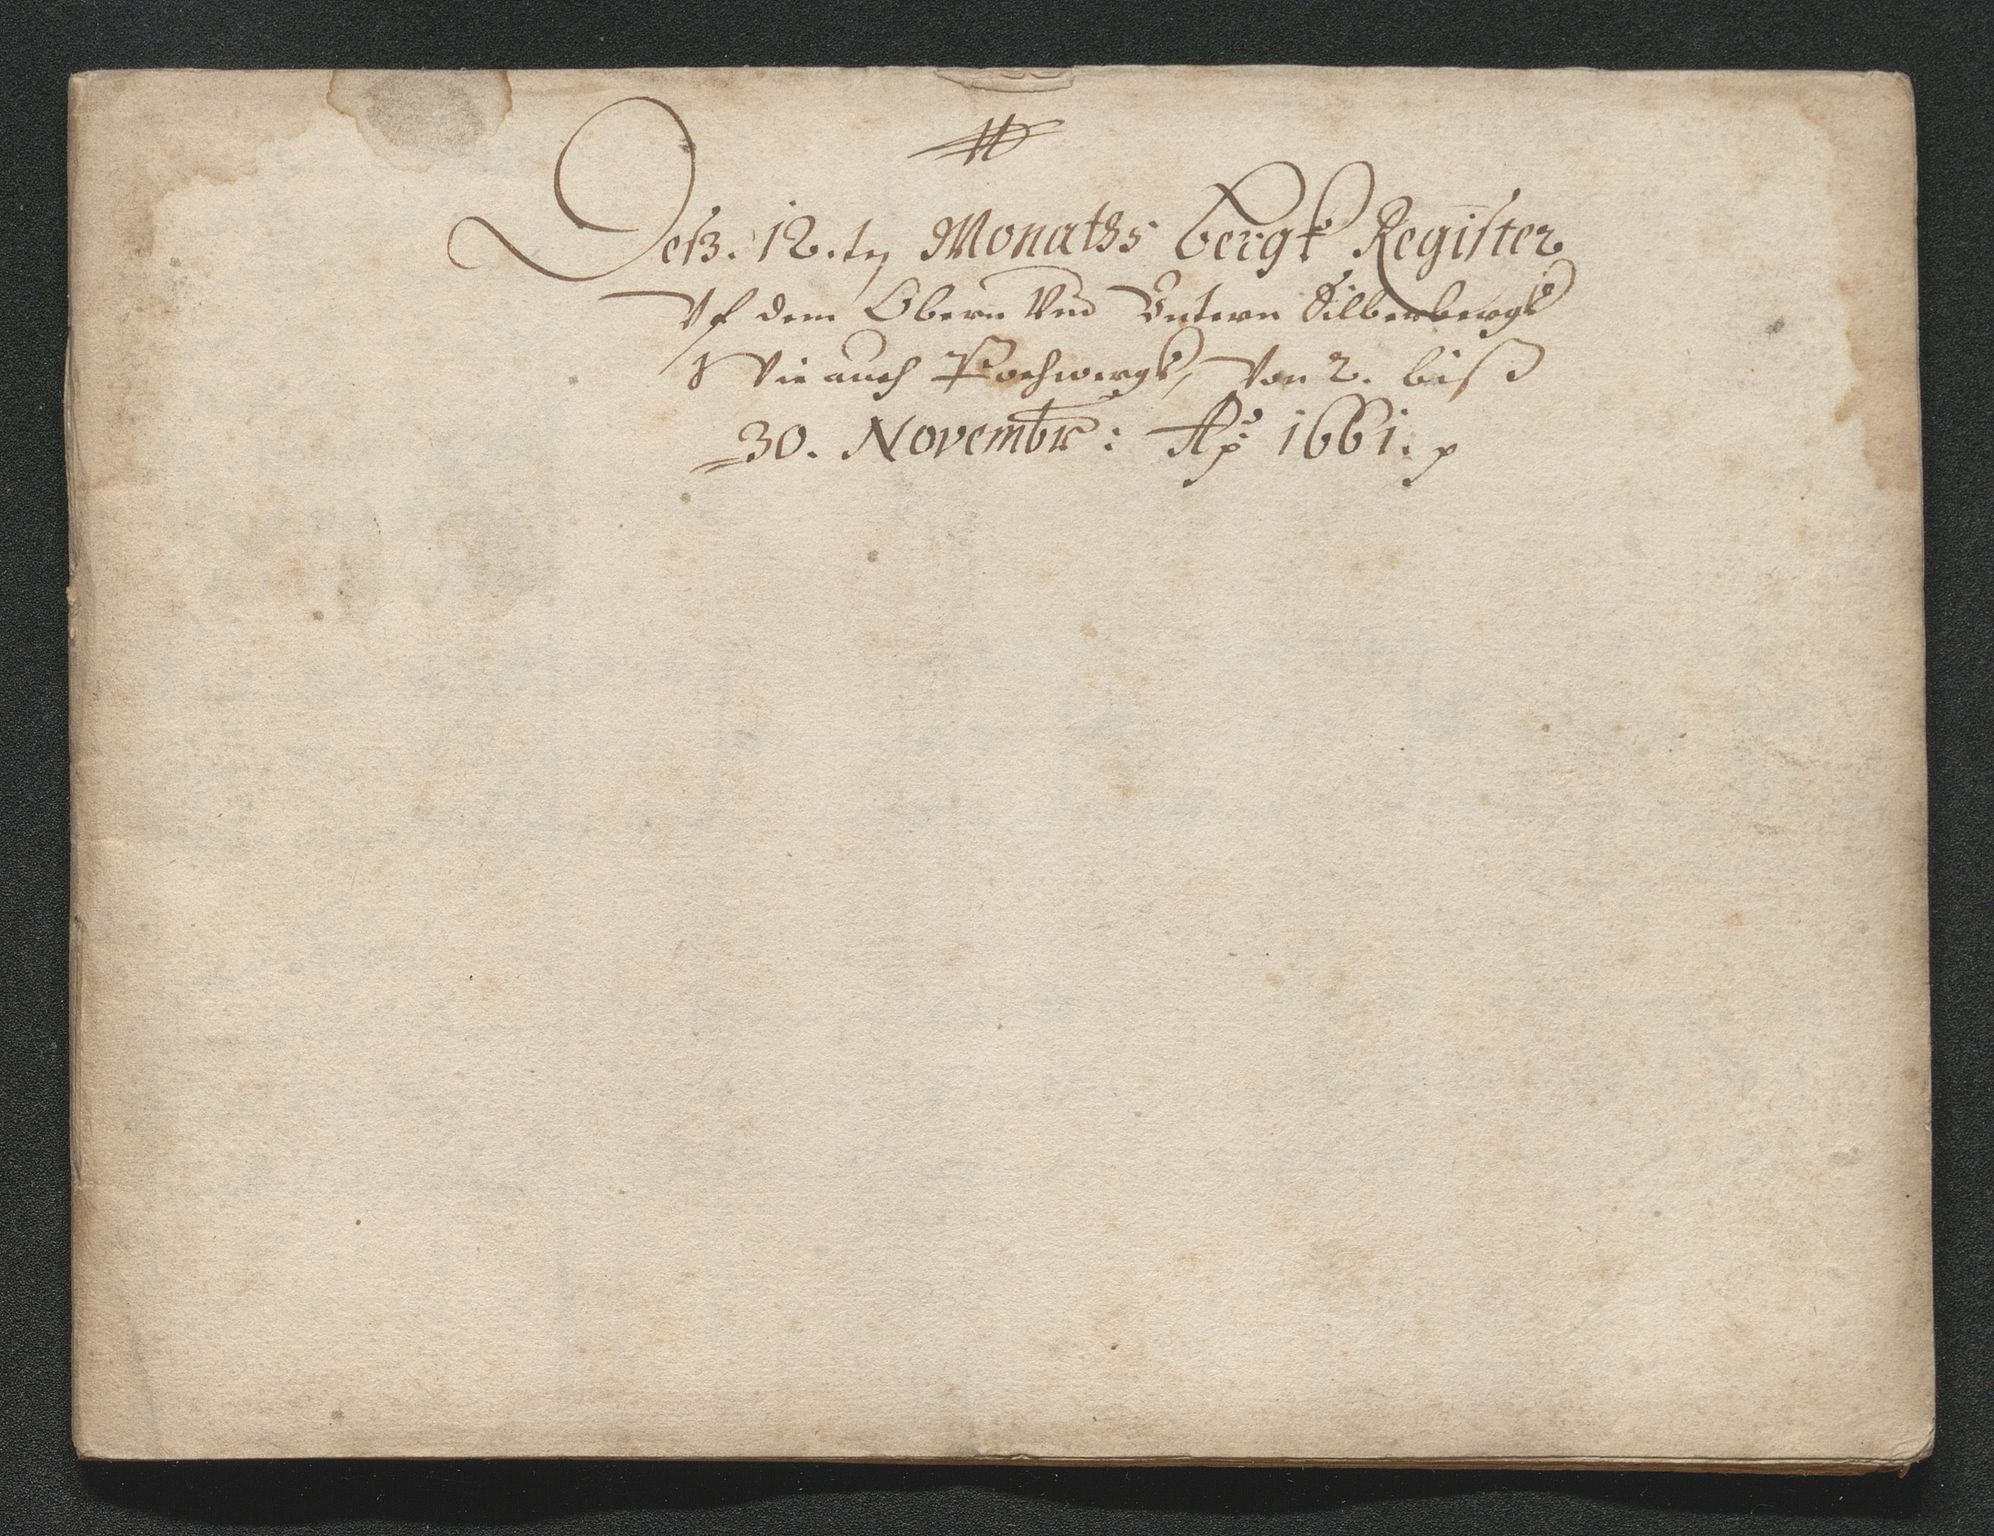 Deß. 12.ty Monaths bergk Register
Vf dem Obern Vnd Vntern Silberbergk
Wie auch Pochwergk, Von 2. biß
30. Novembr: Ao 1661. p